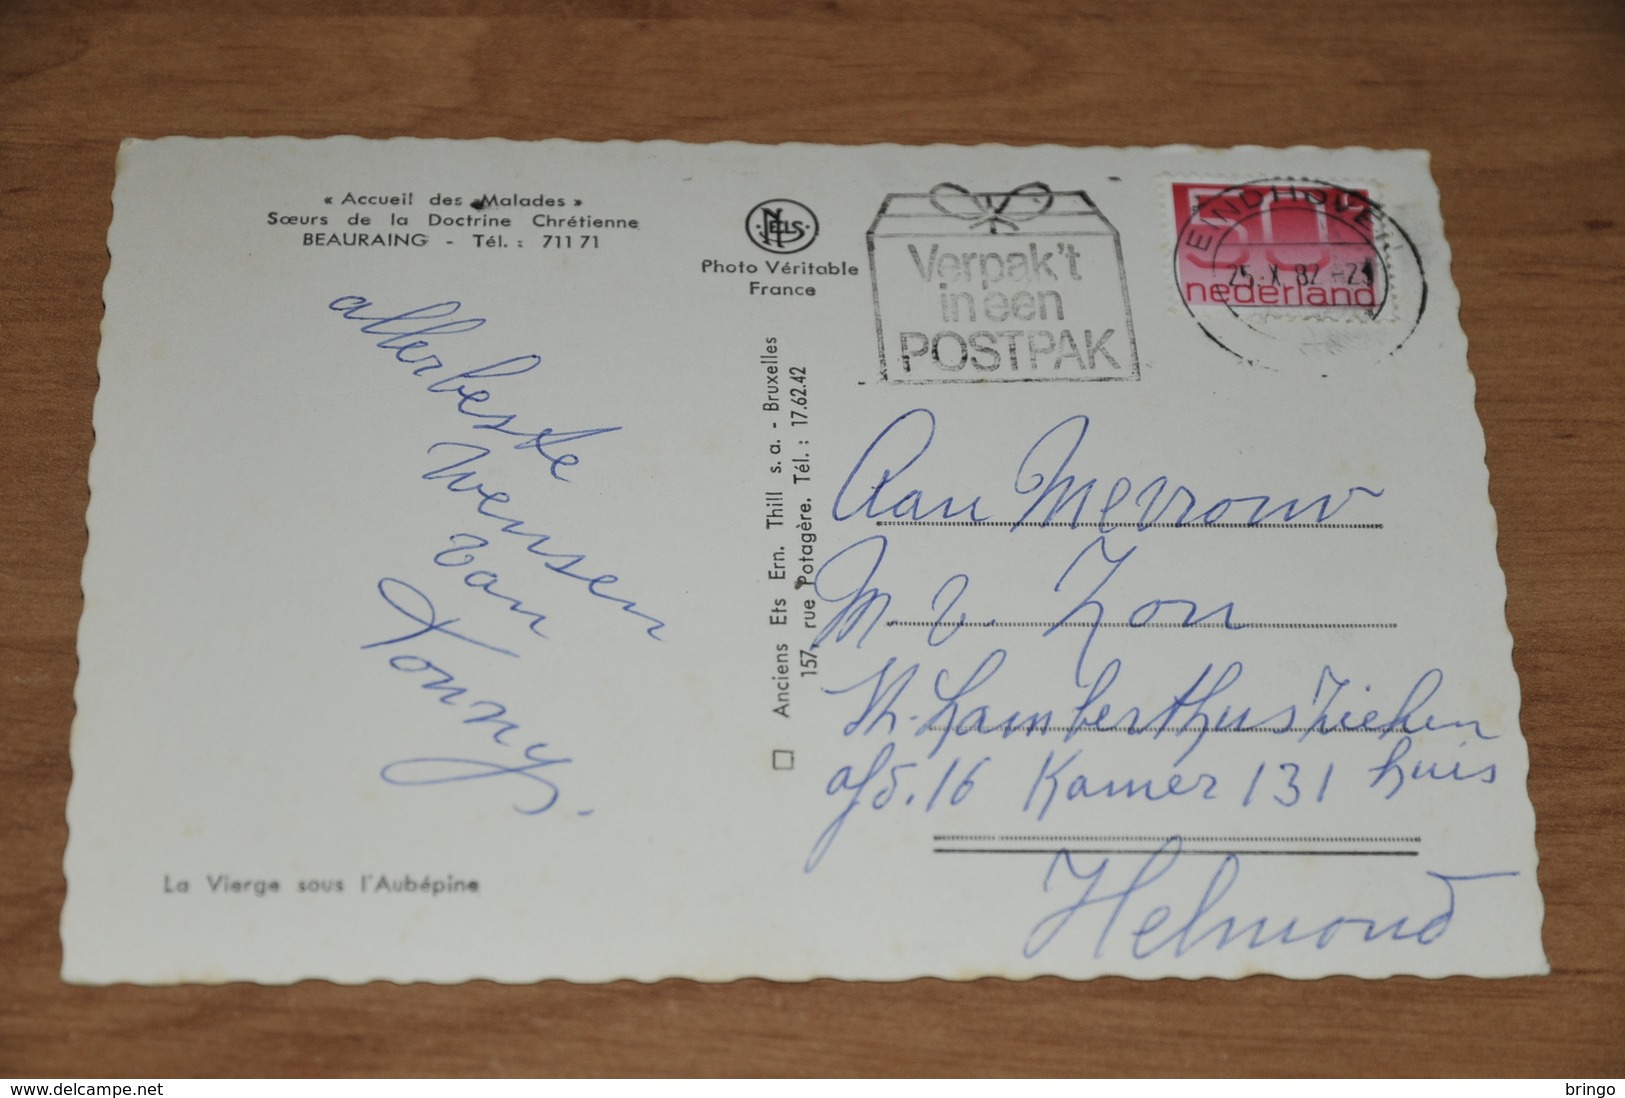 « Accueil des Malades »
Sœurs de la Doctrine Chrétienne
BEAURAING - Tél. : 711 71
NELS
Photo Véritable
France
Verpak't
in een
POSTPAK
EINDHOVEN
25.X.82
50
nederland
allerbeste
wensen
van
Tonny.
Anciens Ets Ern. Thill s. a. - Bruxelles
157, rue Potagère. Tél. : 17.62.42
Aan Mevrouw
M. v. Zon
St. Lamberthuszieken
afd. 16 Kamer 131 huis
Helmond
La Vierge sous l'Aubépine
www.delcampe.net
bringo